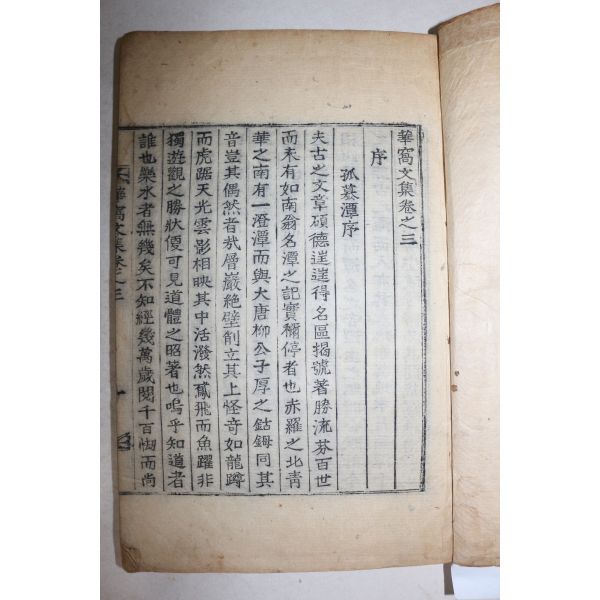 華窩文集卷之三
序
孤墓潭序
夫古之文章碩德遑遑得名區揭號著勝流芬百世
而未有如南翁名潭之記實稱停者也赤羅之北靑
華之南有一澄潭而與大唐柳公子厚之鈷鉧同其
音豈其偶然者哉層巖絶壁削立其上怪奇如龍蹲
而虎踞天光雲影相映其中活潑然鳶飛而魚躍非
獨遊觀之勝狀優可見道體之昭著也嗚乎知道者
誰也樂水者無幾矣不知經幾萬歲閱千百刼而尚
華窩文集卷之三 一